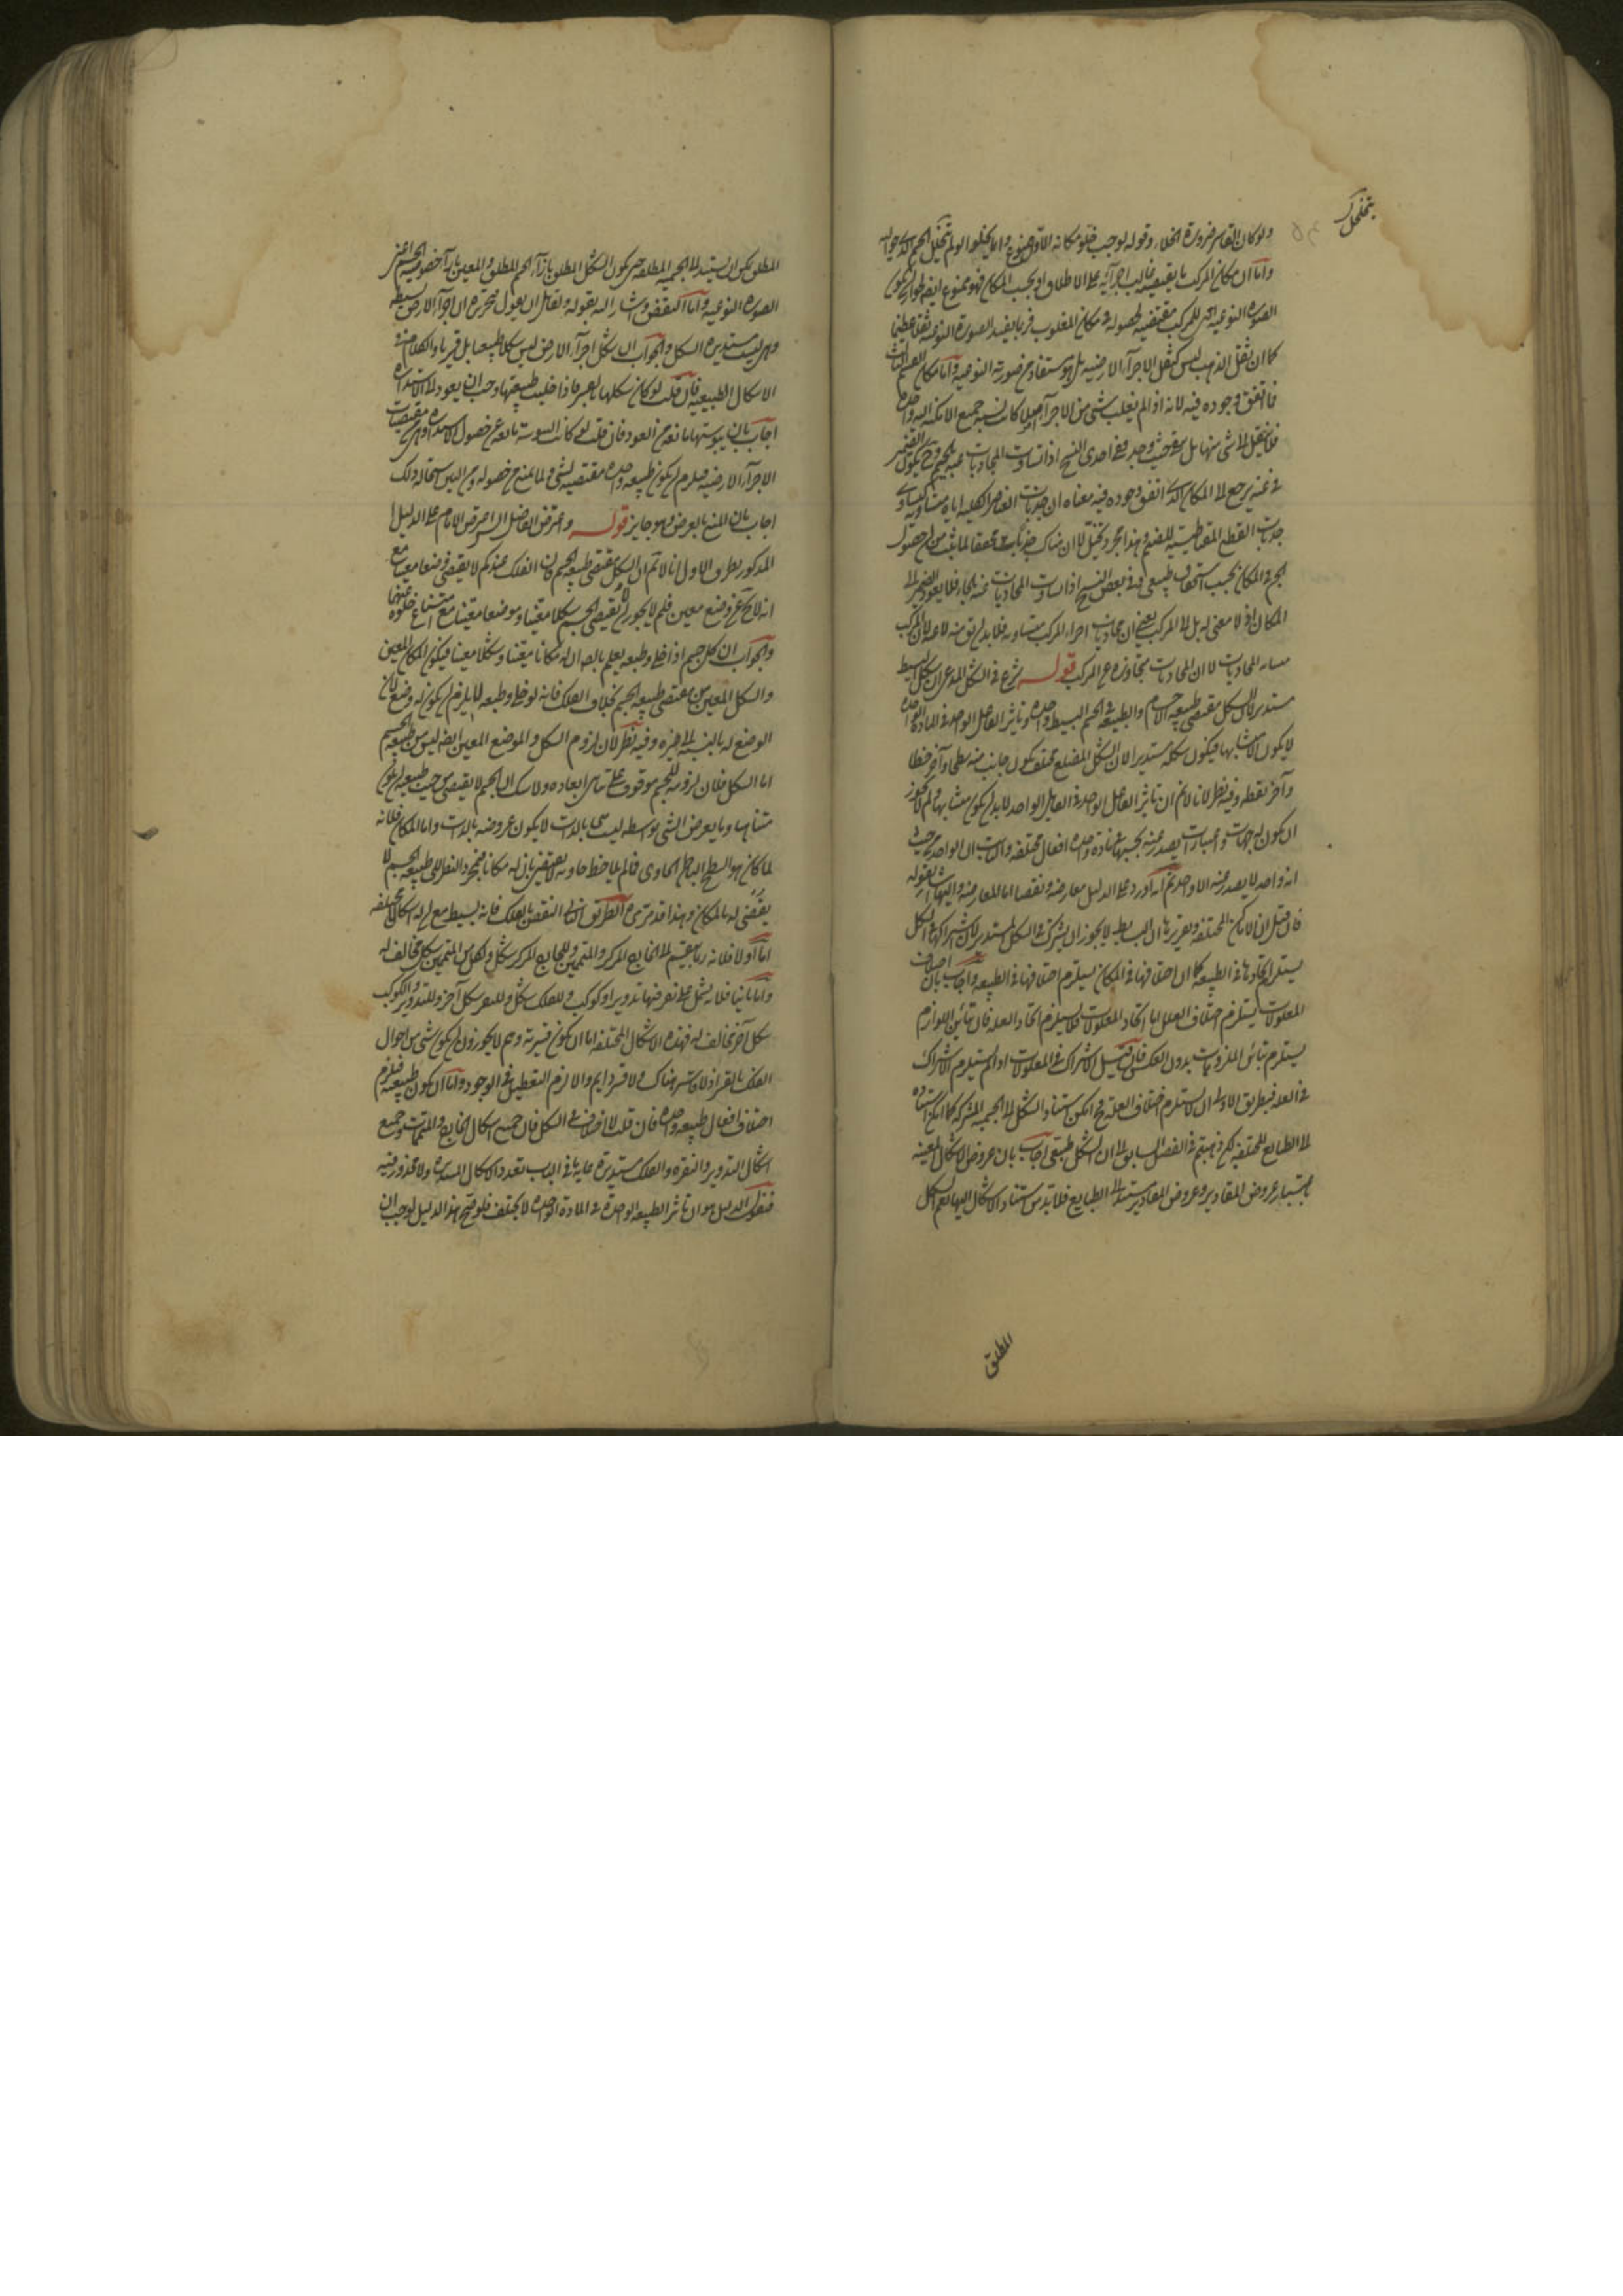 يتخلخل
ولو كان القاسر ضرورة الخلاء وقوله لوجب خلو مكانه الاول ممنوع وانما يخلو لو لم يتخلخل الجسم الذي حواليه
واما ان مكان المركب ما يقتضيه غالب اجزائه على الاطلاق او بحسب المكان فهو ممنوع ايضا لجواز ان يكون
الصورة النوعية التي للمركب مقتضية لحصوله في مكان المغلوب فربما يفيد الصورة النوعية ثقلا عظيما
كما ان ثقل الذهب ليس كثقل الاجزاء الارضية بل هو مستفاد من صورته النوعية واما مكان القسم الثالث
ما اتفق وجوده فيه لانه اذا لم يغلب شيء من الاجزاء كانت نسبة جميع الامكنة اليه واحدة
فلا ينتقل الى شيء منها بل يبقى حيث وجد وفي احدى النسخ اذا تساوت المجاذبات عنه
في عنه يرجع الى المكان الذي اتفق وجوده فيه معناه ان جذبات العناصر الكلية اياه متساوية
جذبات القطع المقناطيسية للصنم وهذا مجرد تخيل لان هناك جذبات محققا لما ثبت من ان حصول
الجزء في المكان بحسب استحقاق طبيعي وفي بعض النسخ اذا تساوت المجاذبات عنه فلا يعود الضمير الى
المكان اذ لا معنى له بل الى المركب يعني ان مجاذبات اجزاء المركب متساوية فلا بد ان تؤخذ منه لا عنه لان المركب
مبدأ المجاذبات لا ان المجاذبات متجاوزة عن المركب قوله شرع في الشكل المدعى ان شكل البسيط
مستدير لان الشكل مقتضى طبيعة الاجسام والطبيعة في الجسم البسيط واحدة وتاثير الفاعل الواحد في المادة الواحدة
لا يكون الا متشابها فيكون شكله مستديرا لان الشكل المضلع مختلف يكون جانب منه سطحا وآخر خطا
وآخر نقطة وفيه نظر لانا لا نم ان تاثير الفاعل الواحد في القابل الواحد لا بد ان يكون متشابها ولم لا يجوز
ان يكون له جهات واعتبارات يصدر عنه بحسبها في مادة واحدة افعال مختلفة والثابت ان الواحد من حيث
انه واحد لا يصدر عنه الا واحد ثم انه اورد على الدليل معارضة ونقضا اما المعارضة فاليها اشار بقوله
فان قيل ان الاماكن المختلفة وتقريرها ان البسايط لا يجوز ان يشترك في الشكل المستدير لان اشتراكها في الشكل
يستلزم اتحادها في الطبيعة كما ان اختلافها في المكان يستلزم اختلافها في الطبيعة واجاب بان اختلاف
المعلولات يستلزم اختلاف العلل اما اتحاد المعلولات فلا يستلزم اتحاد العلة فان تباين اللوازم
يستلزم تباين الملزومات بدون العكس فان قيل الاشتراك في المعلولات اذا لم يستلزم الاشتراك
في العلة فبطريق الاولى ان لا يستلزم اختلاف العلة فح يمكن استناد الشكل الى الجسمية المشتركة كما يمكن استناده
الى الطبايع المختلفة لكن ذهبتم في الفصل السابق الى ان الشكل طبيعي اجاب بان عروض الاشكال المعينة
باعتبار عروض المقادير وعروض المقادير يستند الى الطبايع فلا بد من استناد الاشكال اليها نعم الشكل
المطلق
المطلق يمكن ان يستند الى الجسمية المطلقة حتى يكون الشكل المطلق بازاء الجسم المطلق والمعين بازاء خصوصية الجسم اعني
الصورة النوعية واما النقض فاشار اليه بقوله ولقائل ان يقول وتحريره ان اجزاء الارض بسيطة
وهي ليست مستديرة الشكل والجواب ان شكل اجزاء الارض ليس شكلا طبيعيا بل قسريا والكلام في
الاشكال الطبيعية فان قلت لو كان شكلها بالقسر فاذا خليت طبيعتها وجب ان يعود الى الاستدارة
اجاب بان يبوستها مانعة من العود فان قلت لو كانت اليبوسة مانعة عن حصول الاستدارة وهي مقتضيات
الاجزاء الارضية فيلزم ان يكون طبيعة واحدة مقتضية لشيء ولما يمنع من حصوله وهم اليس استحالة ذلك
اجاب بان المنع بالعرض وهو جايز قوله واعترض الفاضل الشارح اعترض الامام على الدليل
المذكور بطرق الاول انا لا نم ان الشكل مقتضى طبيعة الجسم فان الفلك عندكم لا يقتضي وضعا معينا مع
انه لا يخ عن وضع معين فلم لا يجوز ان لا يقتضي الجسم شكلا معينا وموضعا معينا مع امتناع خلوه عنهما
والجواب ان كل جسم اذا خلي وطبعه يعلم بالضرورة ان له مكانا معينا وشكلا معينا فيكون المكان المعين
والشكل المعين من مقتضى طبيعة الجسم بخلاف الفلك فانه لو خلي وطبعه لم يلزم ان يكون له وضع لان
الوضع له بالنسبة الى غيره وفيه نظر لان لزوم الشكل والموضع المعين ايضا ليس من طبيعة الجسم
اما الشكل فلان لزومه للجسم موقوف على تناهي ابعاده ولا شك ان الجسم لا يقتضي من حيث طبيعته ان يكون
متناهيا وما يعرض الشيء بواسطة ليست بالذات لا يكون عروضه بالذات واما المكان فلانه
لما كان هو السطح الباطن الحاوي فما لم يلاحظ حاويه لا يتعين ان له مكانا فبمجرد النظر الى طبيعة الجسم لا
يقتضي له بالمكان وهذا قد مر مرة الطريق الثاني النقض بالفلك فانه بسيط مع ان له اشكالا مختلفة
اما اولا فلانه ربما ينقسم الى الخارج المركز والمتممين وللخارج المركز شكل ولكل من المتممين شكل مخالف له
واما ثانيا فلانه يشتمل على نقر فيها تدوير او كوكب وللفلك شكل وللنقر شكل آخر وللتدوير والكوكب
شكل آخر مخالف له فهذه الاشكال المختلفة اما ان تكون قسرية وهم لا يجوزون ان يكون شيء من احوال
الفلك بالقسر اذ لا قاسر هناك ولا قسر دايم والا لزم التعطيل في الوجود واما ان تكون طبيعية فيلزم
اختلاف افعال طبيعة واحدة فان قلت لا اختلاف في الشكل فان جميع اشكال الخارج والمتممات وجميع
اشكال التدوير والنقرة والفلك مستديرة غاية ما في الباب تعدد الاشكال المستديرة ولا محذور فيه
فنقول الدليل هو ان تاثير الطبيعة الواحدة في المادة الواحدة لا يختلف فلو صح هذا الدليل لوجب ان